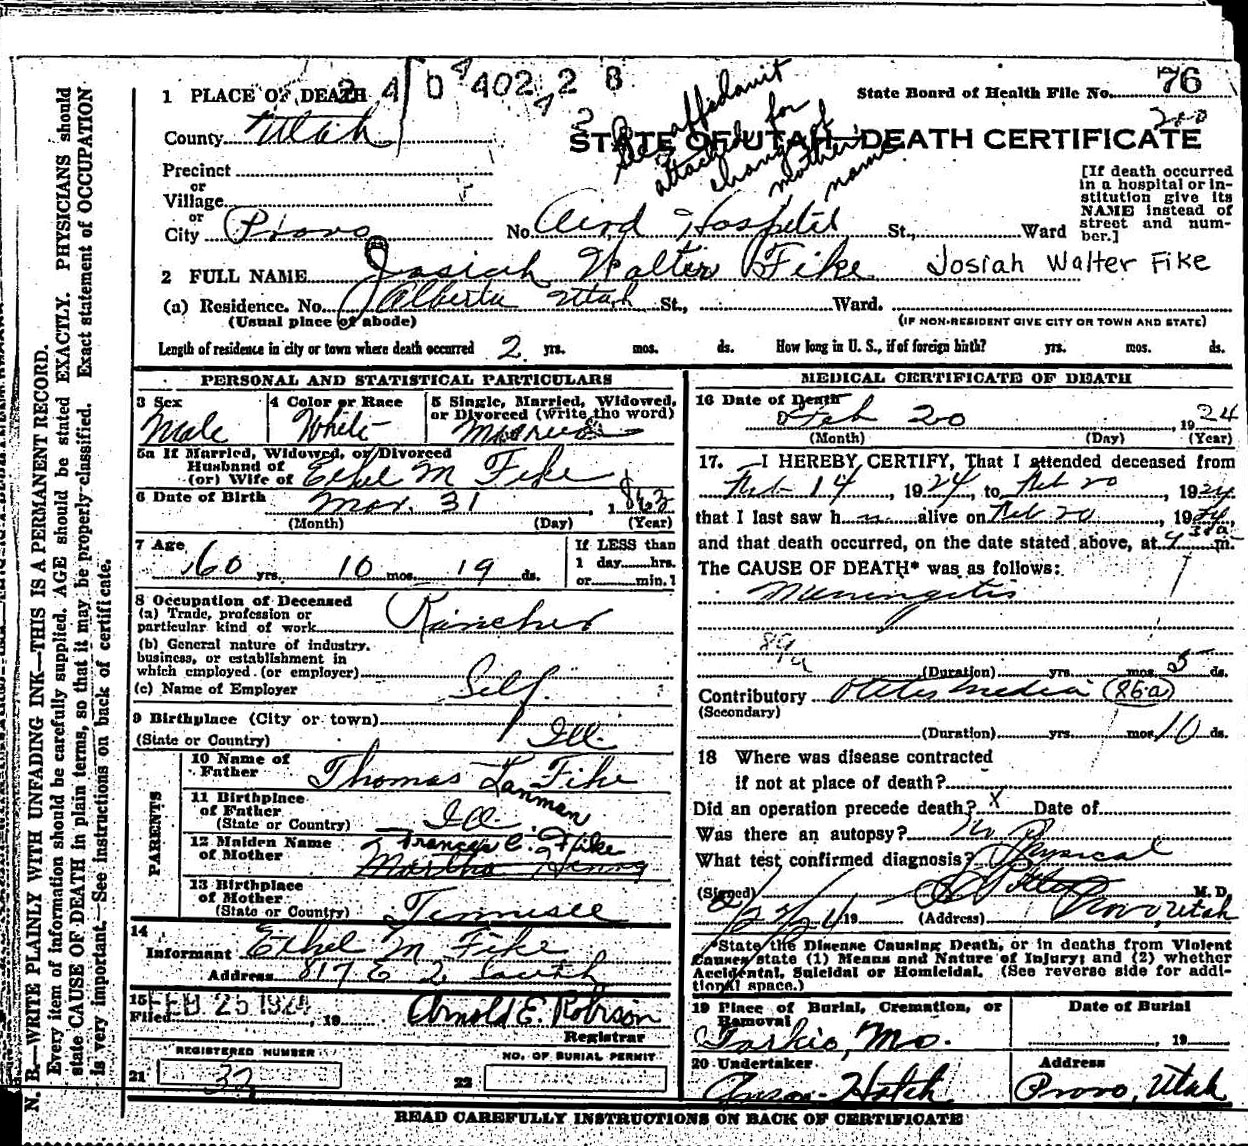 24 D 402 28
State Board of Health File No. 76
1 PLACE OF DEATH
County Utah
STATE OF UTAH—DEATH CERTIFICATE
200
See affidavit
attached for
change of
mother's
name
Precinct
or
Village
or
City Provo
No. Aird Hospital St., Ward
[If death occurred
in a hospital or in-
stitution give its
NAME instead of
street and num-
ber.]
2 FULL NAME Josiah Walter Fike Josiah Walter Fike
(a) Residence. No. Alberta Utah St., Ward.
(Usual place of abode) (IF NON-RESIDENT GIVE CITY OR TOWN AND STATE)
Length of residence in city or town where death occurred 2 yrs. mos. ds. How long in U. S., if of foreign birth? yrs. mos. ds.
PERSONAL AND STATISTICAL PARTICULARS
3 Sex
Male
4 Color or Race
White
5 Single, Married, Widowed,
or Divorced (write the word)
Married
5a If Married, Widowed, or Divorced
Husband of
(or) Wife of Ethel M Fike
6 Date of Birth Mar. 31, 1863
(Month) (Day) (Year)
7 Age
60 yrs. 10 mos. 19 ds.
If LESS than
1 day hrs.
or min.?
8 Occupation of Deceased
(a) Trade, profession or
particular kind of work Rancher
(b) General nature of industry,
business, or establishment in
which employed (or employer)
(c) Name of Employer Self
9 Birthplace (City or town)
(State or Country) Ill.
PARENTS
10 Name of
Father Thomas Lanman Fike
11 Birthplace
of Father
(State or Country) Ill.
12 Maiden Name
of Mother Frances C. Fike
Martha Henry
13 Birthplace
of Mother
(State or Country) Tennisee
14
Informant Ethel M Fike
Address 817 E 2 South
15
Filed FEB 25 1924, 19
Arnold E. Robison
Registrar
REGISTERED NUMBER
21 32
NO. OF BURIAL PERMIT
22
MEDICAL CERTIFICATE OF DEATH
16 Date of Death
Feb 20, 1924
(Month) (Day) (Year)
17. I HEREBY CERTIFY, That I attended deceased from
Feb 14, 1924, to Feb 20, 1924
that I last saw h m alive on Feb 20, 1924,
and that death occurred, on the date stated above, at 4 38a m.
The CAUSE OF DEATH* was as follows:
Meningitis
(Duration) yrs. mos. 5 ds.
Contributory Otites media (86a)
(Secondary)
(Duration) yrs. mos. 10 ds.
18 Where was disease contracted
if not at place of death?
Did an operation precede death? x Date of
Was there an autopsy? No
What test confirmed diagnosis? Physical
(Signed) M. D.
2/22/24, 19 (Address) Provo, Utah
*State the Disease Causing Death, or in deaths from Violent
Causes state (1) Means and Nature of Injury; and (2) whether
Accidental, Suicidal or Homicidal. (See reverse side for addi-
tional space.)
19 Place of Burial, Cremation, or
Removal
Tarkio, Mo.
Date of Burial
, 19
20 Undertaker
Hatch
Address
Provo, Utah
READ CAREFULLY INSTRUCTIONS ON BACK OF CERTIFICATE
N. B.—WRITE PLAINLY WITH UNFADING INK—THIS IS A PERMANENT RECORD.
Every item of information should be carefully supplied. AGE should be stated EXACTLY. PHYSICIANS should
state CAUSE OF DEATH in plain terms, so that it may be properly classified. Exact statement of OCCUPATION
is very important. See instructions on back of certificate.